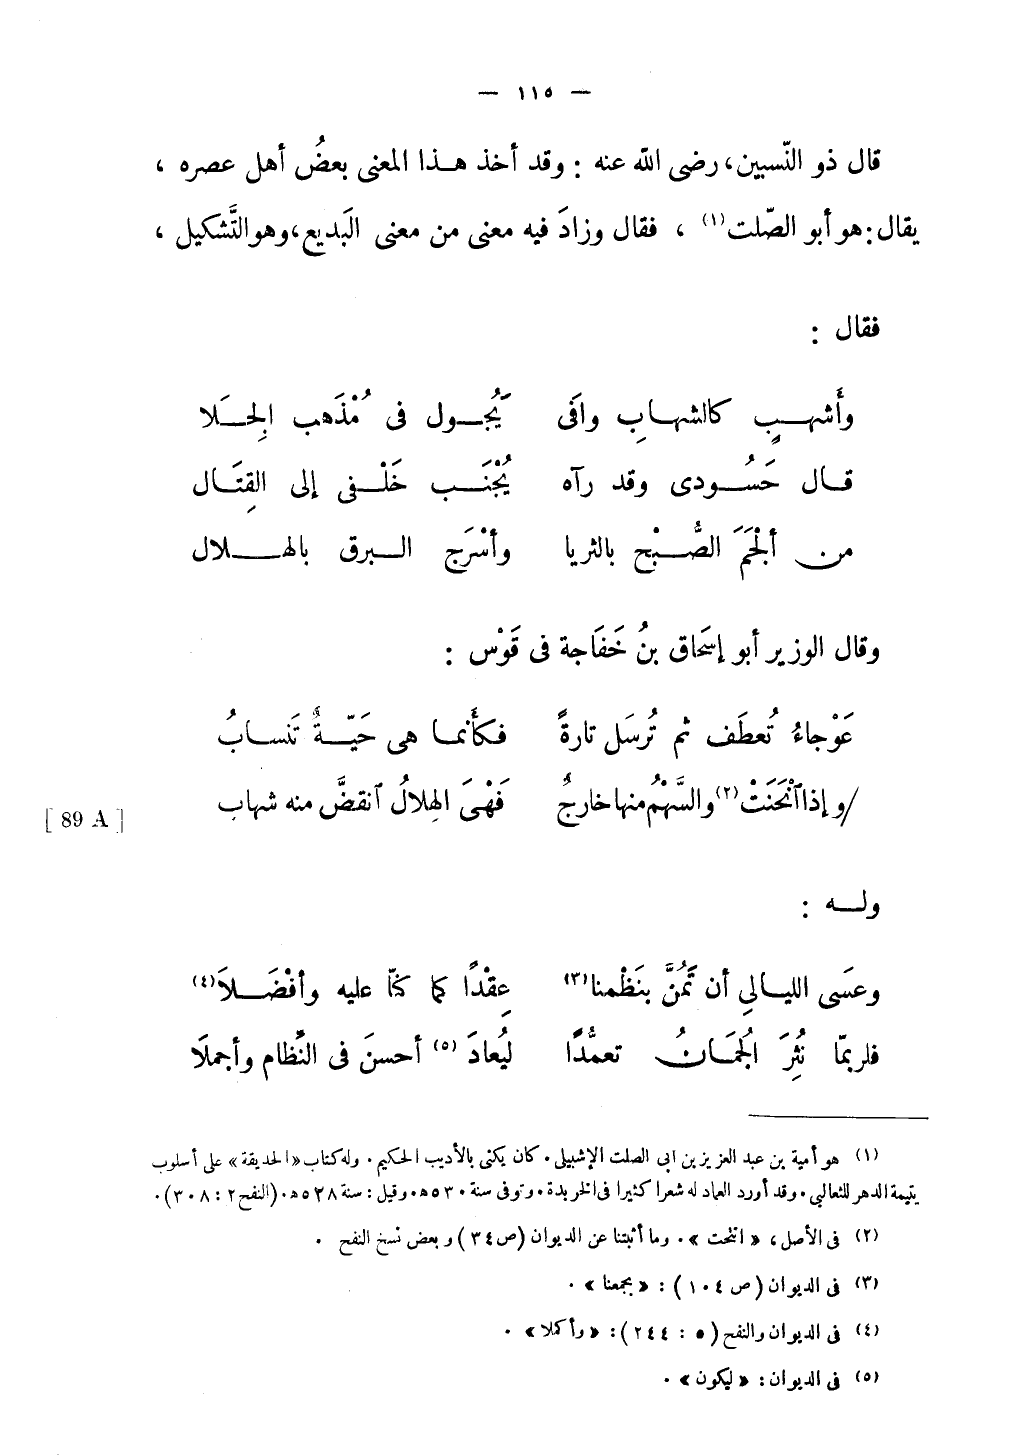 — ١١٥ —
قال ذو النّسبين، رضى الله عنه : وقد أخذ هـذا المعنى بعضُ أهل عصره ،
يقال: هو أبو الصّلت(١) ، فقال وزادَ فيه معنى من معنى البَديع، وهو التَّشكيل ،
فقال :
وأَشهبٍ كالشهابِ وافَى يَجُول فى مُذْهَب الجِلَا
قال حَسُودى وقد رآه يُجْنَب خَلْفى إلى القِتَال
من أَلْجَمَ الصُّبْح بالثريا وأسْرَج البرق بالهلال
وقال الوزير أبو إسَحاق بنُ خَفَاجة فى قَوْس :
عَوْجاءُ تُعطَف ثم تُرسَل تارةً فكأَنما هى حَيّةٌ تَنسابُ
/وإذا ٱنْحَنَتْ(٢) والسَّهْمُ منها خارجٌ فَهْىَ الهِلالُ ٱنقضَّ منه شهاب
[ 89 A ]
وله :
وعسَى الليالِي أن تَمُنَّ بنَظْمنا(٣) عِقْدًا كما كنّا عليه وأفْضَلَا(٤)
فلربمّا نُثِرَ الجُمَانُ تعمُّدًا ليُعادَ (٥) أحسنَ فى النِّظام وأجملَا
(١) هو أمية بن عبد العزيز بن ابى الصلت الإشبيلى. كان يكنى بالأديب الحكيم. وله كتاب «الحديقة» على أسلوب
يتيمة الدهر للثعالبي. وقد أورد العماد له شعرا كثيرا فى الخريدة. وتوفى سنة ٥٣٠ ه. وقيل: سنة ٥٢٨ ه. (النفح ٢ : ٣٠٨).
(٢) فى الأصل، « انتحت ». وما أثبتنا عن الديوان (ص ٣٤) وبعض نسخ النفح .
(٣) فى الديوان (ص ١٠٤) : « بجمعنا » .
(٤) فى الديوان والنفح (٥ : ٢٤٤) : « وأكملا » .
(٥) فى الديوان : « ليكون » .